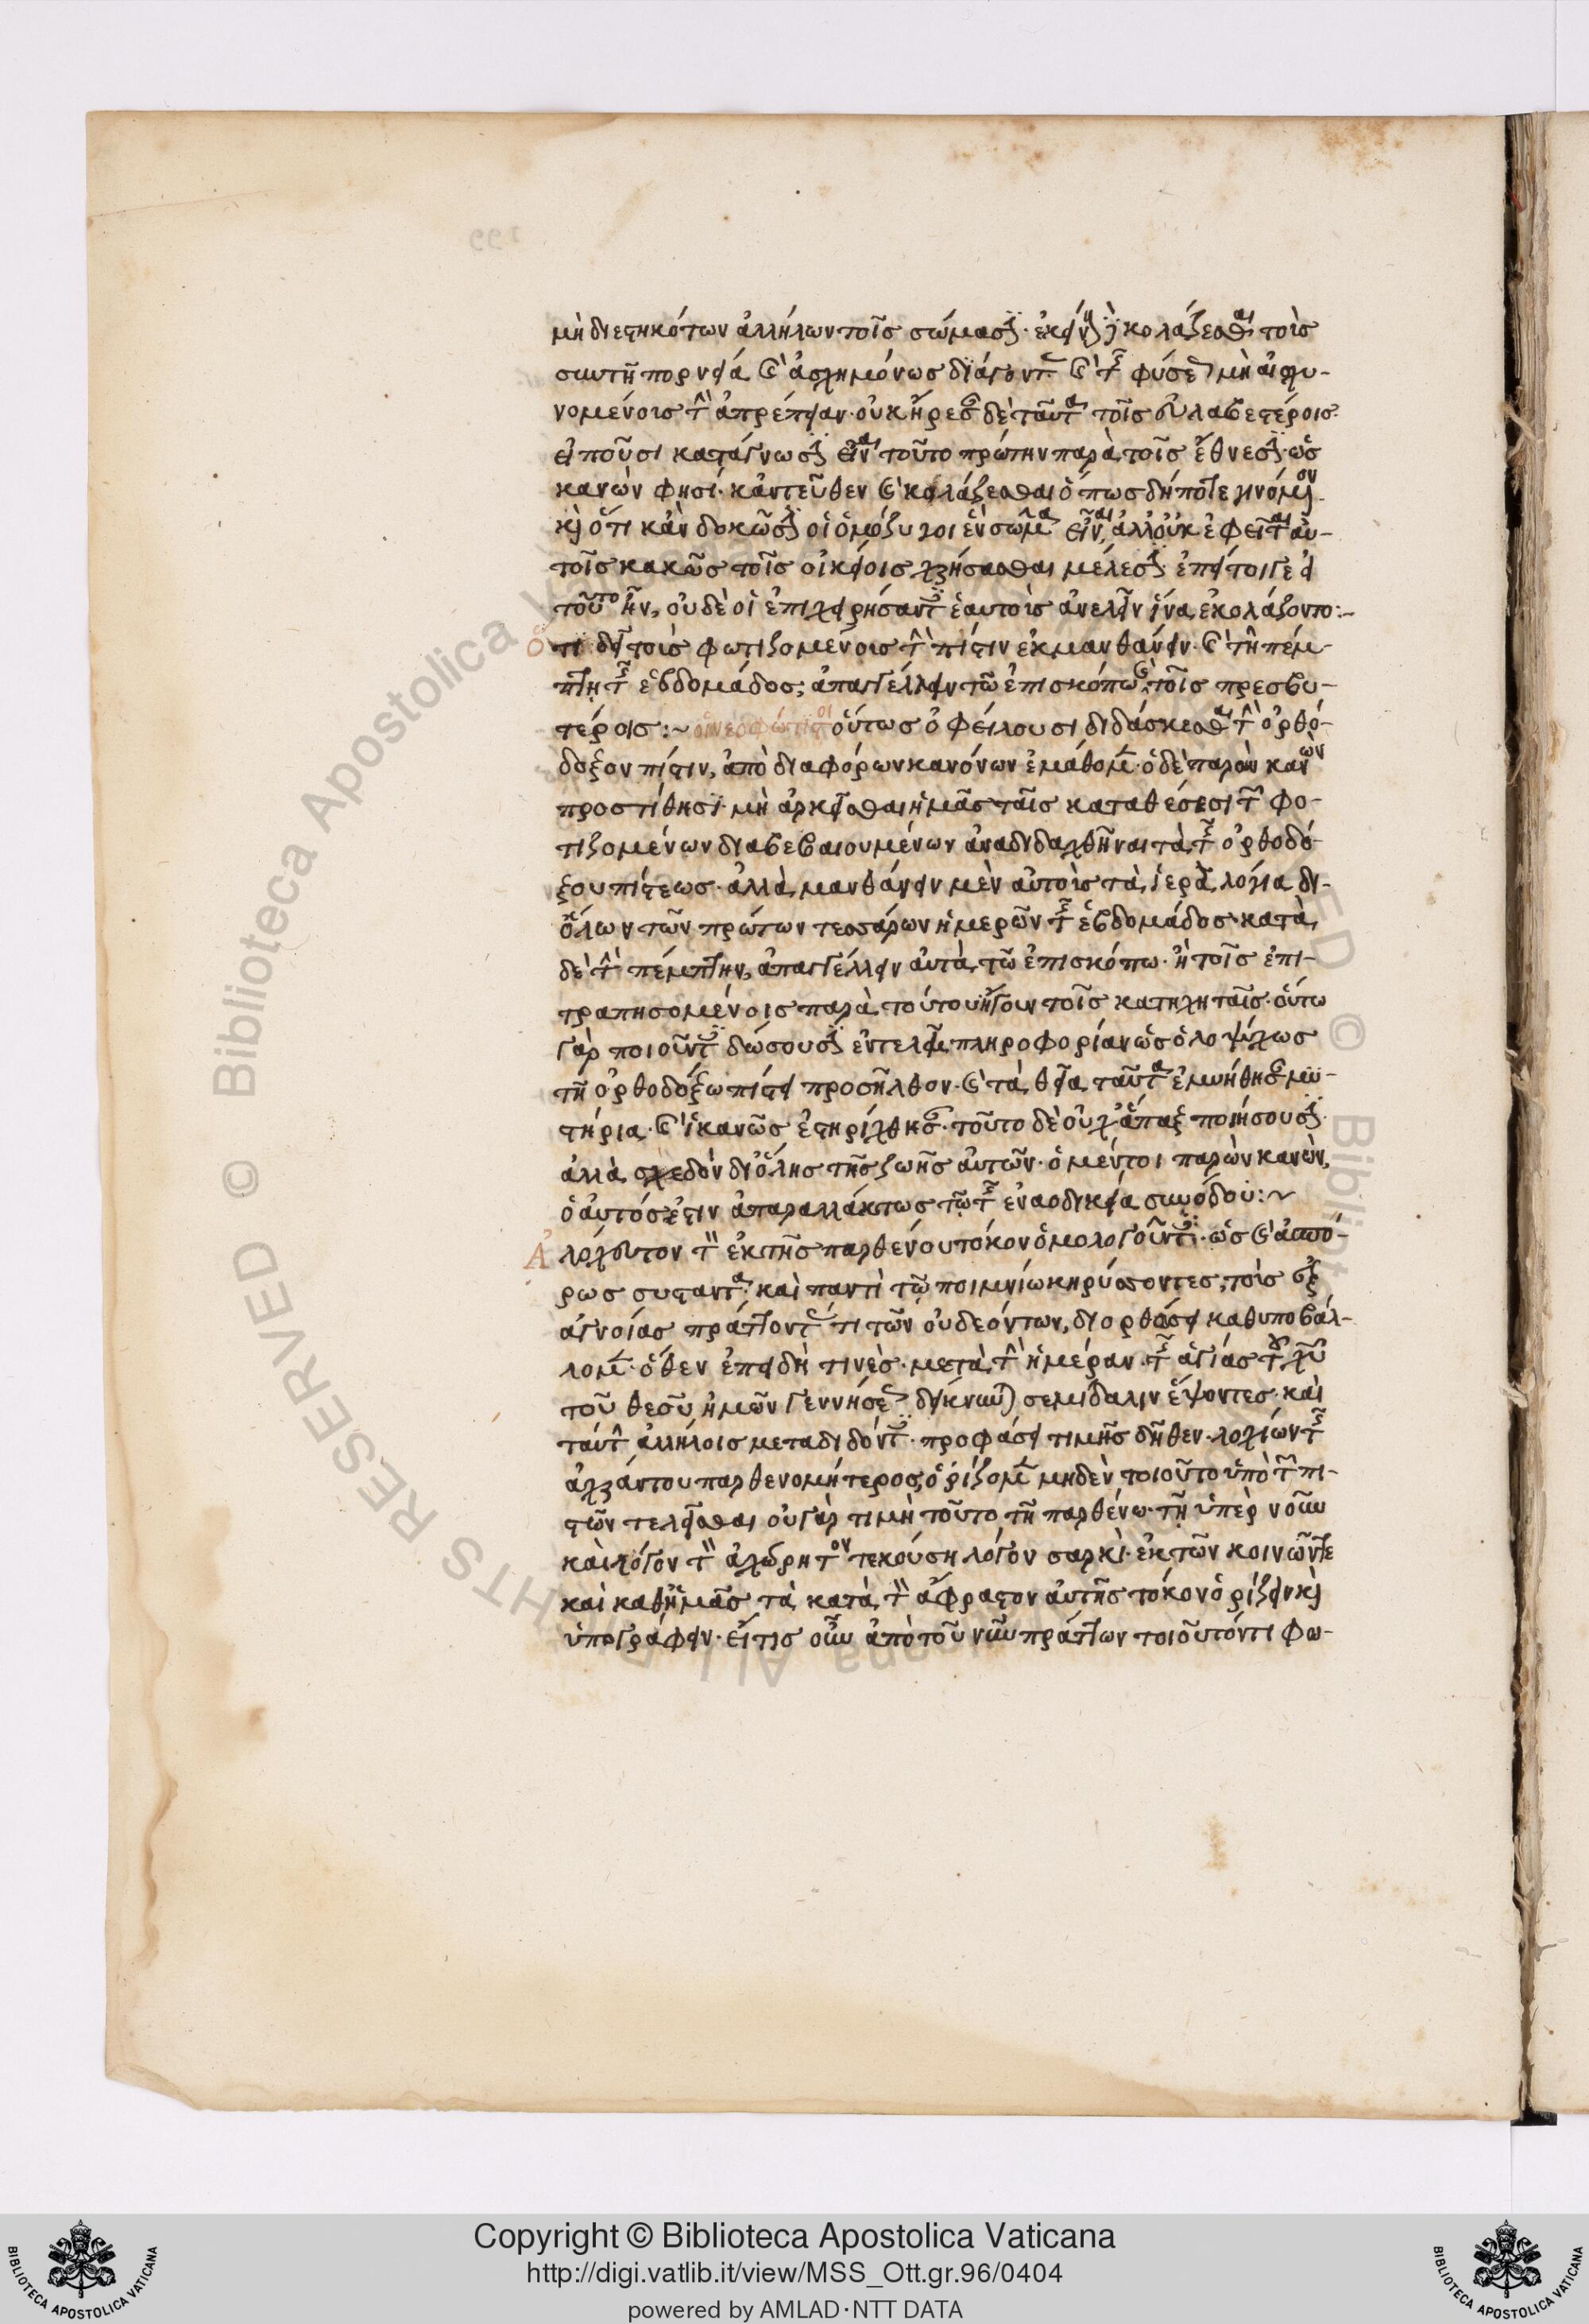 μὴ διεστηκότων ἀλλήλων τοῖς σώμασι· ἐκείνους κολάζεσθαι τοὺς
σὺν τῇ πορνεία καὶ ἀσχημόνως διάγοντας καὶ τῆς φύσεως μὴ αἰσχυ-
νομένοις τὴν ἀπρέπειαν· οὐκ ἤρεσε δὲ ταῦτα τοῖς εὐλαβεστέροις·
εἰποῦσι κατάγνωσιν εἶναι τοῦτο πρώτην παρὰ τοῖς ἔθνεσιν· ὡς
κανὼν φησί· κἀντεῦθεν καὶ κολάζεσθαι ὅπως δήποτε γινόμενον
καὶ ὅτι κἂν δοκῶσιν οἱ ὁμόζυγοι ἓν σῶμα εἶναι, ἀλλ' οὐκ ἐφεῖται αὐ-
τοῖς κακῶς τοῖς οἰκείοις χρήσασθαι μέλεσιν· ἐπεί τοιγε εἰ
τοῦτο ἦν, οὐδὲ οἱ ἐπιχειρήσαντες ἑαυτοὺς ἀνελεῖν ἵνα ἐκολάζοντο:-
Ὅτι δεῖ τοὺς φωτιζομένους τὴν πίστιν ἐκμανθάνειν· καὶ τῇ πέμ-
πτῃ τῆς ἑβδομάδος; ἀπαγγέλλειν τῶ ἐπισκόπω καὶ τοῖς πρεσβυ-
τέροις:~ οἱ νεοφώτιστοι οὕτως ὀφείλουσι διδάσκεσθαι τὴν ὀρθό-
δοξον πίστιν, ἀπὸ διαφόρων κανόνων ἐμάθομεν· ὁ δὲ παρὼν κανὼν
προστίθησι· μὴ ἀρκεῖσθαι ἡμᾶς ταῖς καταθέσεσι τῶν φο-
τιζομένων διαβεβαιουμένων ἀναδιδαχθῆναι τὰ τῆς ὀρθοδό-
ξου πίστεως· ἀλλὰ μανθάνειν μὲν αὐτοὺς τὰ ἱερὰ λόγια δι-
όλων τῶν πρώτων τεσσάρων ἡμερῶν τῆς ἑβδομάδος· κατὰ
δὲ τὴν πέμπτην, ἀπαγγέλλειν αὐτὰ τῶ ἐπισκόπω· ἢ τοῖς ἐπι-
τραπησομένοις παρὰ τούτου ἤγουν τοῖς κατηχηταῖς· οὕτω
γὰρ ποιοῦντες δώσουσιν ἐντελῆ πληροφορίαν ὡς ὁλοψύχως
τῇ ὀρθοδόξω πίστει προσῆλθον· καὶ τὰ θεῖα ταῦτα ἐμυήθησαν μυ-
στήρια· καὶ ἱκανῶς ἐστηρίχθησαν· τοῦτο δὲ οὐχ ἅπαξ ποιήσουσιν·
ἀλλὰ σχεδὸν δι' ὅλης τῆς ζωῆς αὐτῶν· ὁ μέντοι παρὼν κανὼν,
ὁ αὐτός ἐστιν ἀπαραλλάκτως τῶ τῆς ἐν λαοδικεία συνόδου:~
Ἀλόχευτον τὸν ἐκ τῆς παρθένου τόκον ὁμολογοῦντες· ὡς καὶ ἀσπό-
ρως συστάντα· καὶ παντὶ τῶ ποιμνίω κηρύσσοντες, τοὺς ἐξ
ἀγνοίας πράττοντάς τι τῶν οὐ δεόντων, διορθώσει καθυποβάλ-
λομεν· ὅθεν ἐπειδὴ τινὲς· μετὰ τὴν ἡμέραν· τῆς ἁγίας τοῦ χριστοῦ
τοῦ θεοῦ ἡμῶν γεννήσεως δείκνυνται σεμίδαλιν ἕψοντες· καὶ
ταύτην ἀλλήλοις μεταδιδόντες· προφάσει τιμῆς δῆθεν· λοχίων τῆς
ἀχράντου παρθενομήτερος, ὁρίζομεν μηδὲν τοιοῦτο ὑπὸ τῶν πι-
στῶν τελεῖσθαι οὐ γὰρ τιμὴ τοῦτο τῇ παρθένω· τῇ ὑπὲρ νοῦν
καὶ λόγον τὸν ἀχώρητον τεκούσῃ λόγον σαρκὶ· ἐκ τῶν κοινῶν τε
καὶ καθ' ἡμᾶς τὰ κατὰ τὸν ἄφραστον αὐτῆς τόκον ὁρίζειν καὶ
ὑπογράφειν· εἴ τις οὖν ἀπὸ τοῦ νῦν πράττων τοιοῦτόν τι φω-
Copyright © Biblioteca Apostolica Vaticana
http://digi.vatlib.it/view/MSS_Ott.gr.96/0404
powered by AMLAD·NTT DATA